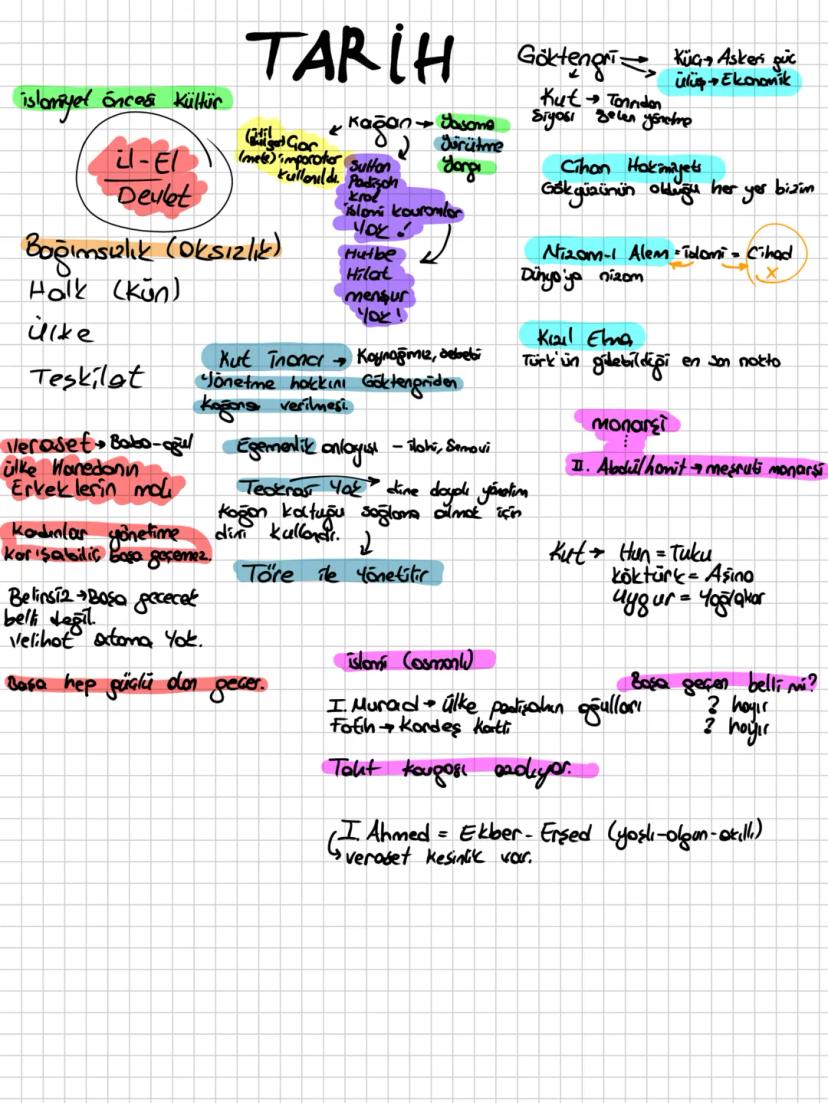 TARİH
islamiyet öncesi kültür
il-El
Devlet
Bağımsızlık (Oksızlık)
Halk (Kün)
Ülke
Teşkilat
Veraset → Baba-oğul
ülke Hanedanın
Erkeklerin malı
Kadınlar yönetime
karışabilir, başa geçemez.
Belirsiz → Başa geçecek
belli değil.
Velihat atama yok.
Başa hep güçlü olan geçer.
Kağan → Yasama
Yürütme
Yargı
(İtil Bulgar) Çar
(mete) imparator
kullanıldı.
Sultan
Padişah
Kral
islami kavramlar
YOK!
Hutbe
Hilat
menşur
YOK!
Kut inancı → Kaynağımız, sebebi
Yönetme hakkını Göktengriden
Kağana verilmesi.
Egemenlik anlayışı - ilahi, Semavi
Teokrasi Yok → dine dayalı yönetim
Kağan koltuğu sağlama almak için
dini kullandı.
Töre ile yönetilir
Göktengri → Küç → Askeri güç
ülüş → Ekonomik
Kut → Tanrıdan
Siyasi gelen yönetme
Cihan Hakimiyeti
Gökyüzünün olduğu her yer bizim
Nizam-ı Alem = islami = Cihad
x
Dünya'ya nizam
Kızıl Elma
Türk'ün gidebildiği en son nokta
monarşi
II. Abdülhamit → meşruti monarşi
Kut → Hun = Tuku
Köktürk = Aşina
Uygur = Yağlakar
islami (osmanlı)
Başa geçen belli mi?
I. Murad → ülke padişahın oğulları ? hayır
Fatih → Kardeş katli ? hayır
Taht kavgası azalıyor.
I. Ahmed = Ekber - Erşed (yaşlı-olgun-akıllı)
veraset kesinlik var.